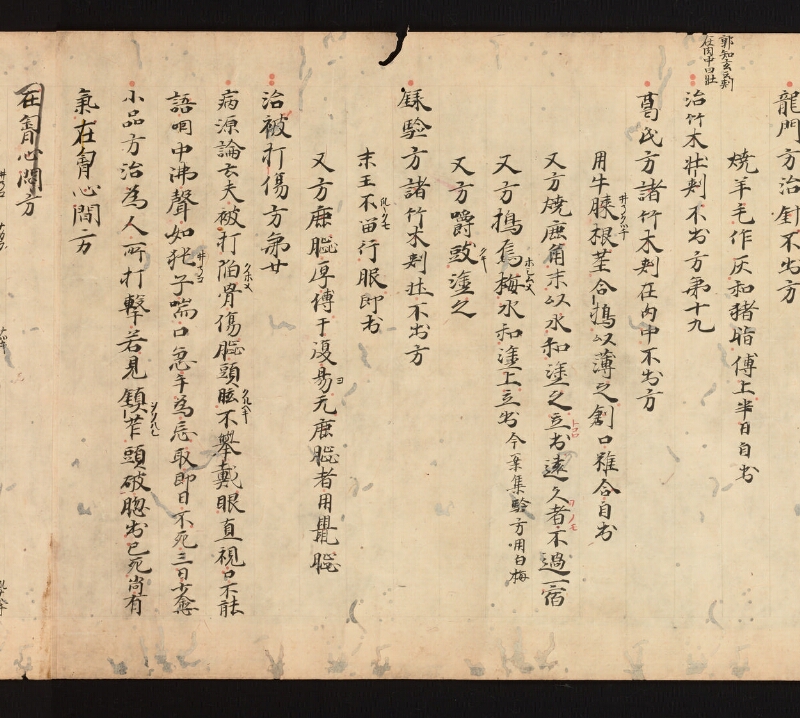 龍門方治針不出方
燒羊毛作灰和猪脂傅上半日自出
治竹木壯刺不出方第十九
郭知玄云刺
在肉中曰壯
葛氏方諸竹木刺在肉中不出方
用牛膝根莖合擣以薄之創口雖合自出
又方燒鹿角末以水和塗之立出遠久者不過一宿
又方擣烏梅水和塗上立出今案集驗方用白梅
又方嚼豉塗之
録驗方諸竹木刺壯不出方
末王不留行服即出
又方鹿𦠆厚傅干復易无鹿𦠆者用
治被打傷方第廿
病源論云夫被打陷骨傷𦠆頭眩不舉戴眼直視口不能
語咽中沸聲如㹠子喘口急手為忘取即日不死三日少愈
小品方治為人所打擊若見鎮苲頭破𦠆出已死尚有
氣在胷心間方
在胷心間方